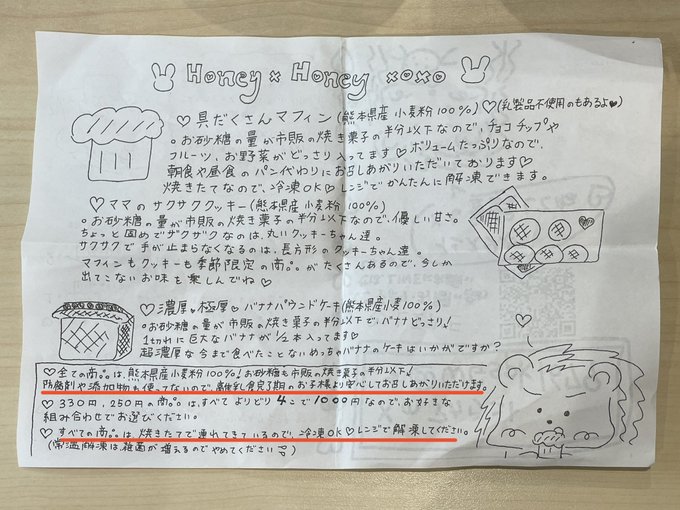 Honey x Honey xoxo
♡具だくさんマフィン(熊本県産 小麦粉100%)♡(乳製品不使用のもあるよ♥)
。お砂糖の量が市販の焼き菓子の半分以下なので、チョコチップや
フルーツ、お野菜がどっさり入ってます♡ボリュームたっぷりなので、
朝食や昼食のパン代わりにお召しあがりいただいております♡
焼きたてなので、冷凍OK♡レンジでかんたんに解凍できます。
♡ママのサクサククッキー(熊本県産 小麦粉100%)
。お砂糖の量が市販の焼き菓子の半分以下なので、優しい甘さ。
ちょっと固めでザクザクなのは、丸いクッキーちゃん達。
サクサクで手が止まらなくなるのは、長方形のクッキーちゃん達。
マフィンもクッキーも季節限定の商品がたくさんあるので、今しか
出てこないお味を楽しんでね♡
♡濃厚♥極厚♥バナナパウンドケーキ(熊本県産小麦100%)
。お砂糖の量が市販の焼き菓子の半分以下で、バナナどっさり!
1切れに巨大なバナナが1/2本入ってます
超濃厚な今まで食べたことないめっちゃバナナのケーキはいかがですか?
♡全ての商品は、熊本県産小麦粉100%!お砂糖も市販の焼き菓子の半分以下!
防腐剤や添加物も使ってないので、離乳食完了期のお子様より安心してお召しあがりいただけます。
♡330円、250円の商品は、すべてよりどり4こで1000円なので、お好きな
組み合わせでお選びください。
♡すべての商品は、焼きたてで連れてきているので、冷凍OK♡レンジで解凍してください。
(常温解凍は雑菌が増えるのでやめてください)